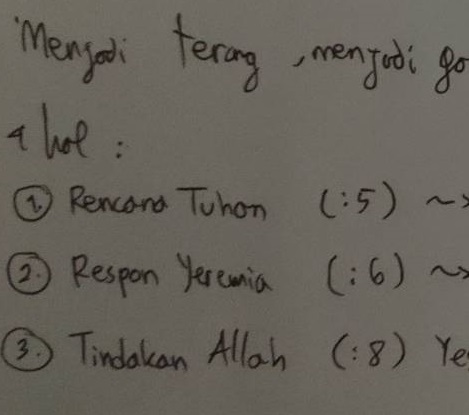 Menjadi terang, menjadi ga
4 hal :
1. Rencana Tuhan (:5) ~>
2. Respon Yeremia (:6) ~>
3. Tindakan Allah (:8) Ye